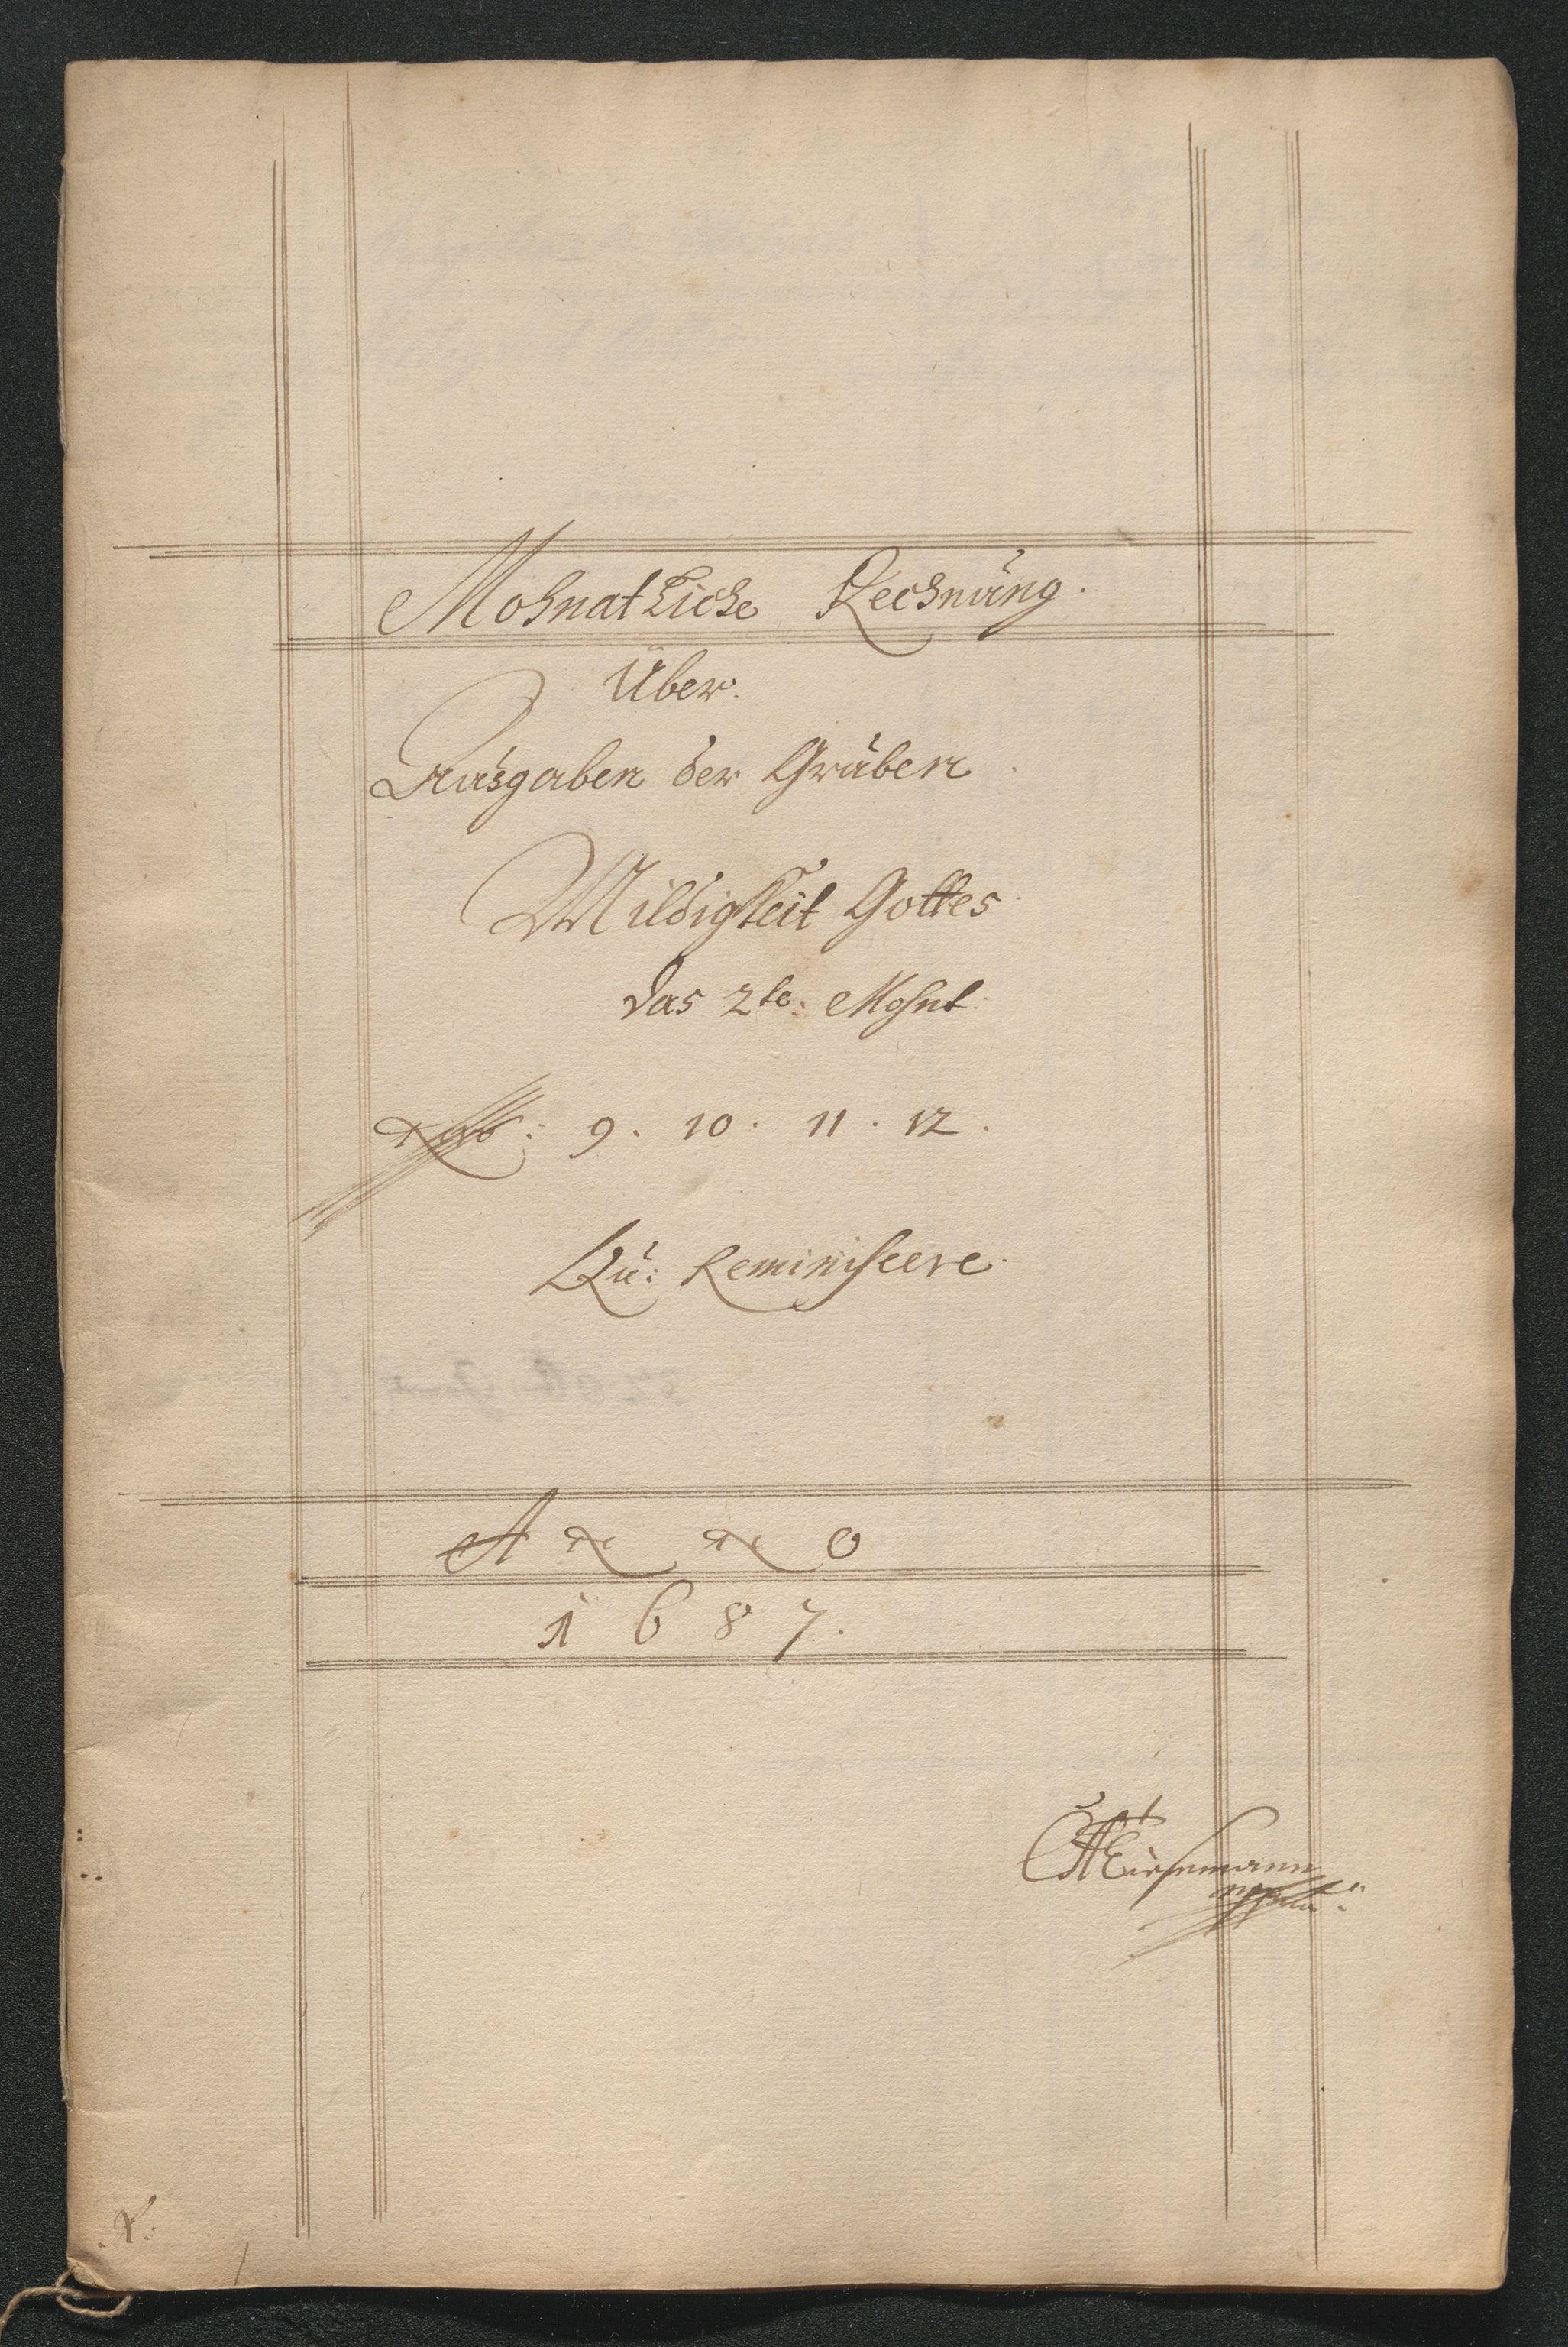 Mohnatliche Rechnung.
Über
Ausgaben der Gruben
Mildigkeit Gottes
das 2te: Mohnt:
9. 10. 11. 12.
Qu: Reminiscere.
Anno
1687.